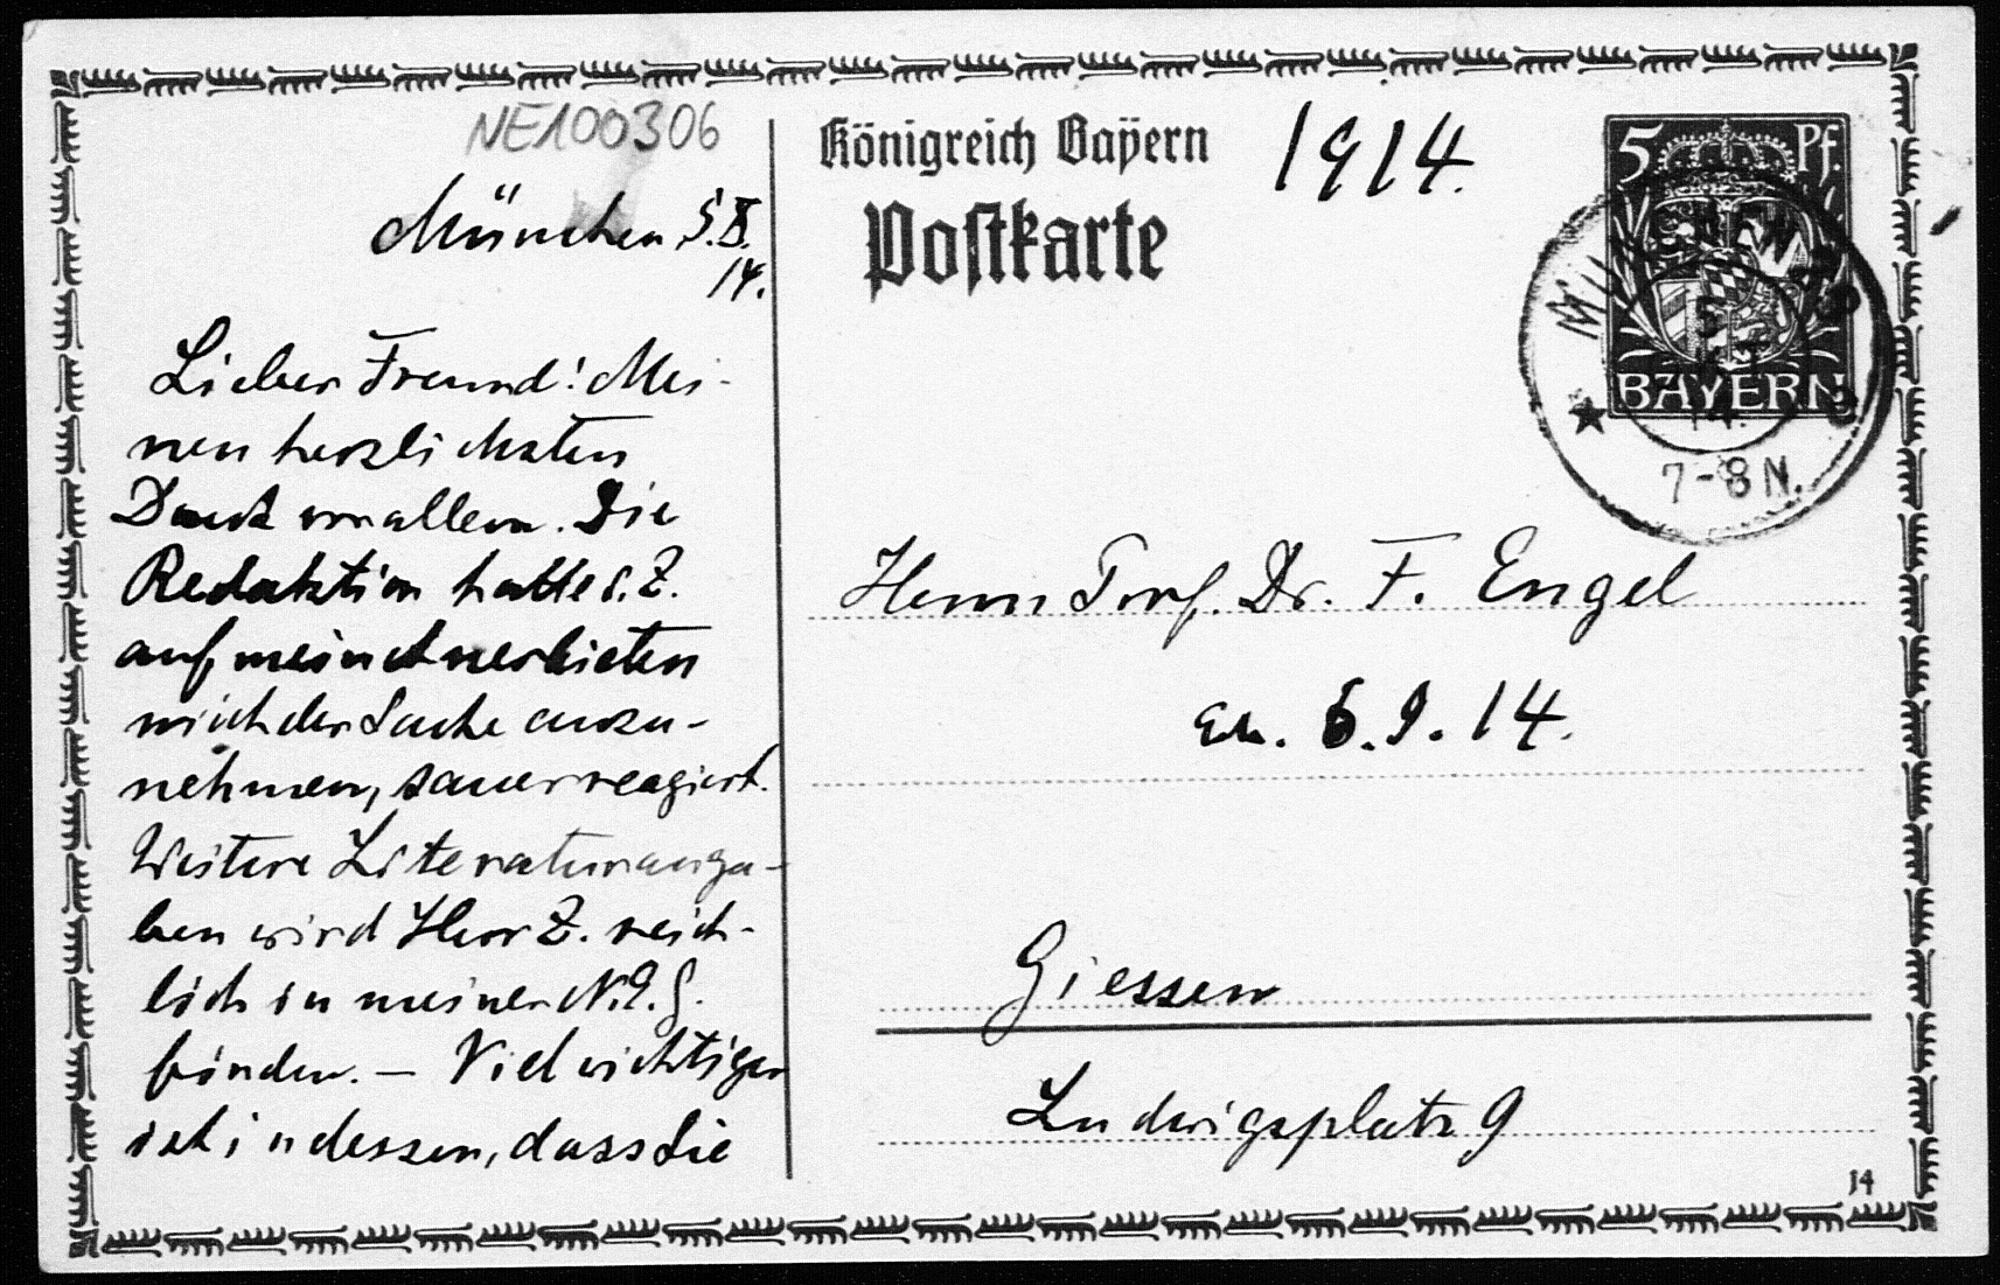 NE100306
München 5.X.
14.
Lieber Freund! Mei-
nen herzlichsten
Dank vor allem. Die
Redaktion hatte s.Z.
auf mein Anerbieten
mich der Sache anzu-
nehmen, sauer reagiert.
Weitere Literaturanga-
ben wird Herr Z. reich-
lich in meiner N.
finden. – Viel wichtiger
ist indessen, dass Sie
Königreich Bayern
1914.
Postkarte
5 Pf.
BAYERN
MÜNCHEN
5
14.
7-8 N.
Herrn Prof. Dr. F. Engel
6.9.14.
Giessen
Ludwigsplatz 9
14